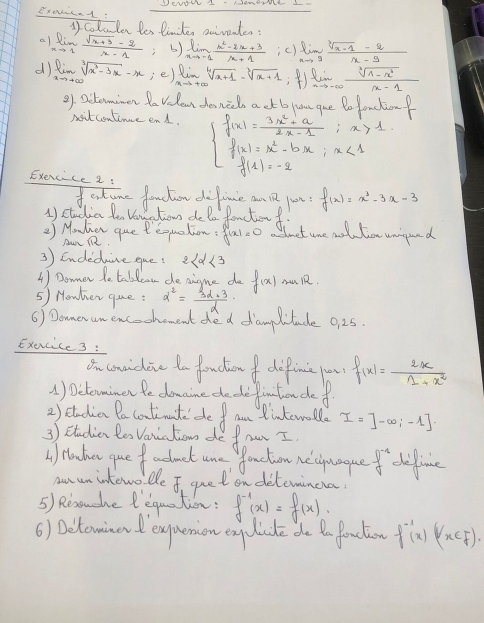 Devoir 1 - Semestre 1 -
Exercice 1 :
1) Calculer les limites suivantes :
a) lim x→1 (√(x+3) - 2)/(x - 1) ; b) lim x→-1 (x² - 2x + 3)/(x + 1) ; c) lim x→9 (∛(x-1) - 2)/(x - 9)
d) lim x→+∞ ∛(x³ - 3x) - x ; e) lim x→+∞ √(x+1) - ∛(x+1) ; f) lim x→-∞ ∛(1 - x²)/(x - 1)
2) Déterminer la valeur des réels a et b pour que la fonction f
soit continue en 1.
f(x) = (3x² + a)/(2x - 1) ; x > 1
f(x) = x² - bx ; x < 1
f(1) = -2
Exercice 2 :
f est une fonction définie sur ℝ par : f(x) = x³ - 3x - 3
1) Etudier les Variations de la fonction f.
2) Montrer que l'équation : f(x) = 0 admet une solution unique α
sur ℝ.
3) En déduire que : 2 < α < 3
4) Donner le tableau de signe de f(x) sur ℝ.
5) Montrer que : α² = (3α + 3)/α
6) Donner un encadrement de α d'amplitude 0,25.
Exercice 3 :
On considère la fonction f définie par : f(x) = 2x/(1 + x²)
1) Déterminer le domaine de définition de f.
2) Etudier la continuité de f sur l'intervalle I = ]-∞ ; -1].
3) Etudier les Variations de f sur I.
4) Montrer que f admet une fonction réciproque f⁻¹ définie
sur un intervalle J que l'on déterminera.
5) Résoudre l'équation : f⁻¹(x) = f(x).
6) Déterminer l'expression explicite de la fonction f⁻¹(x) (∀x∈J).